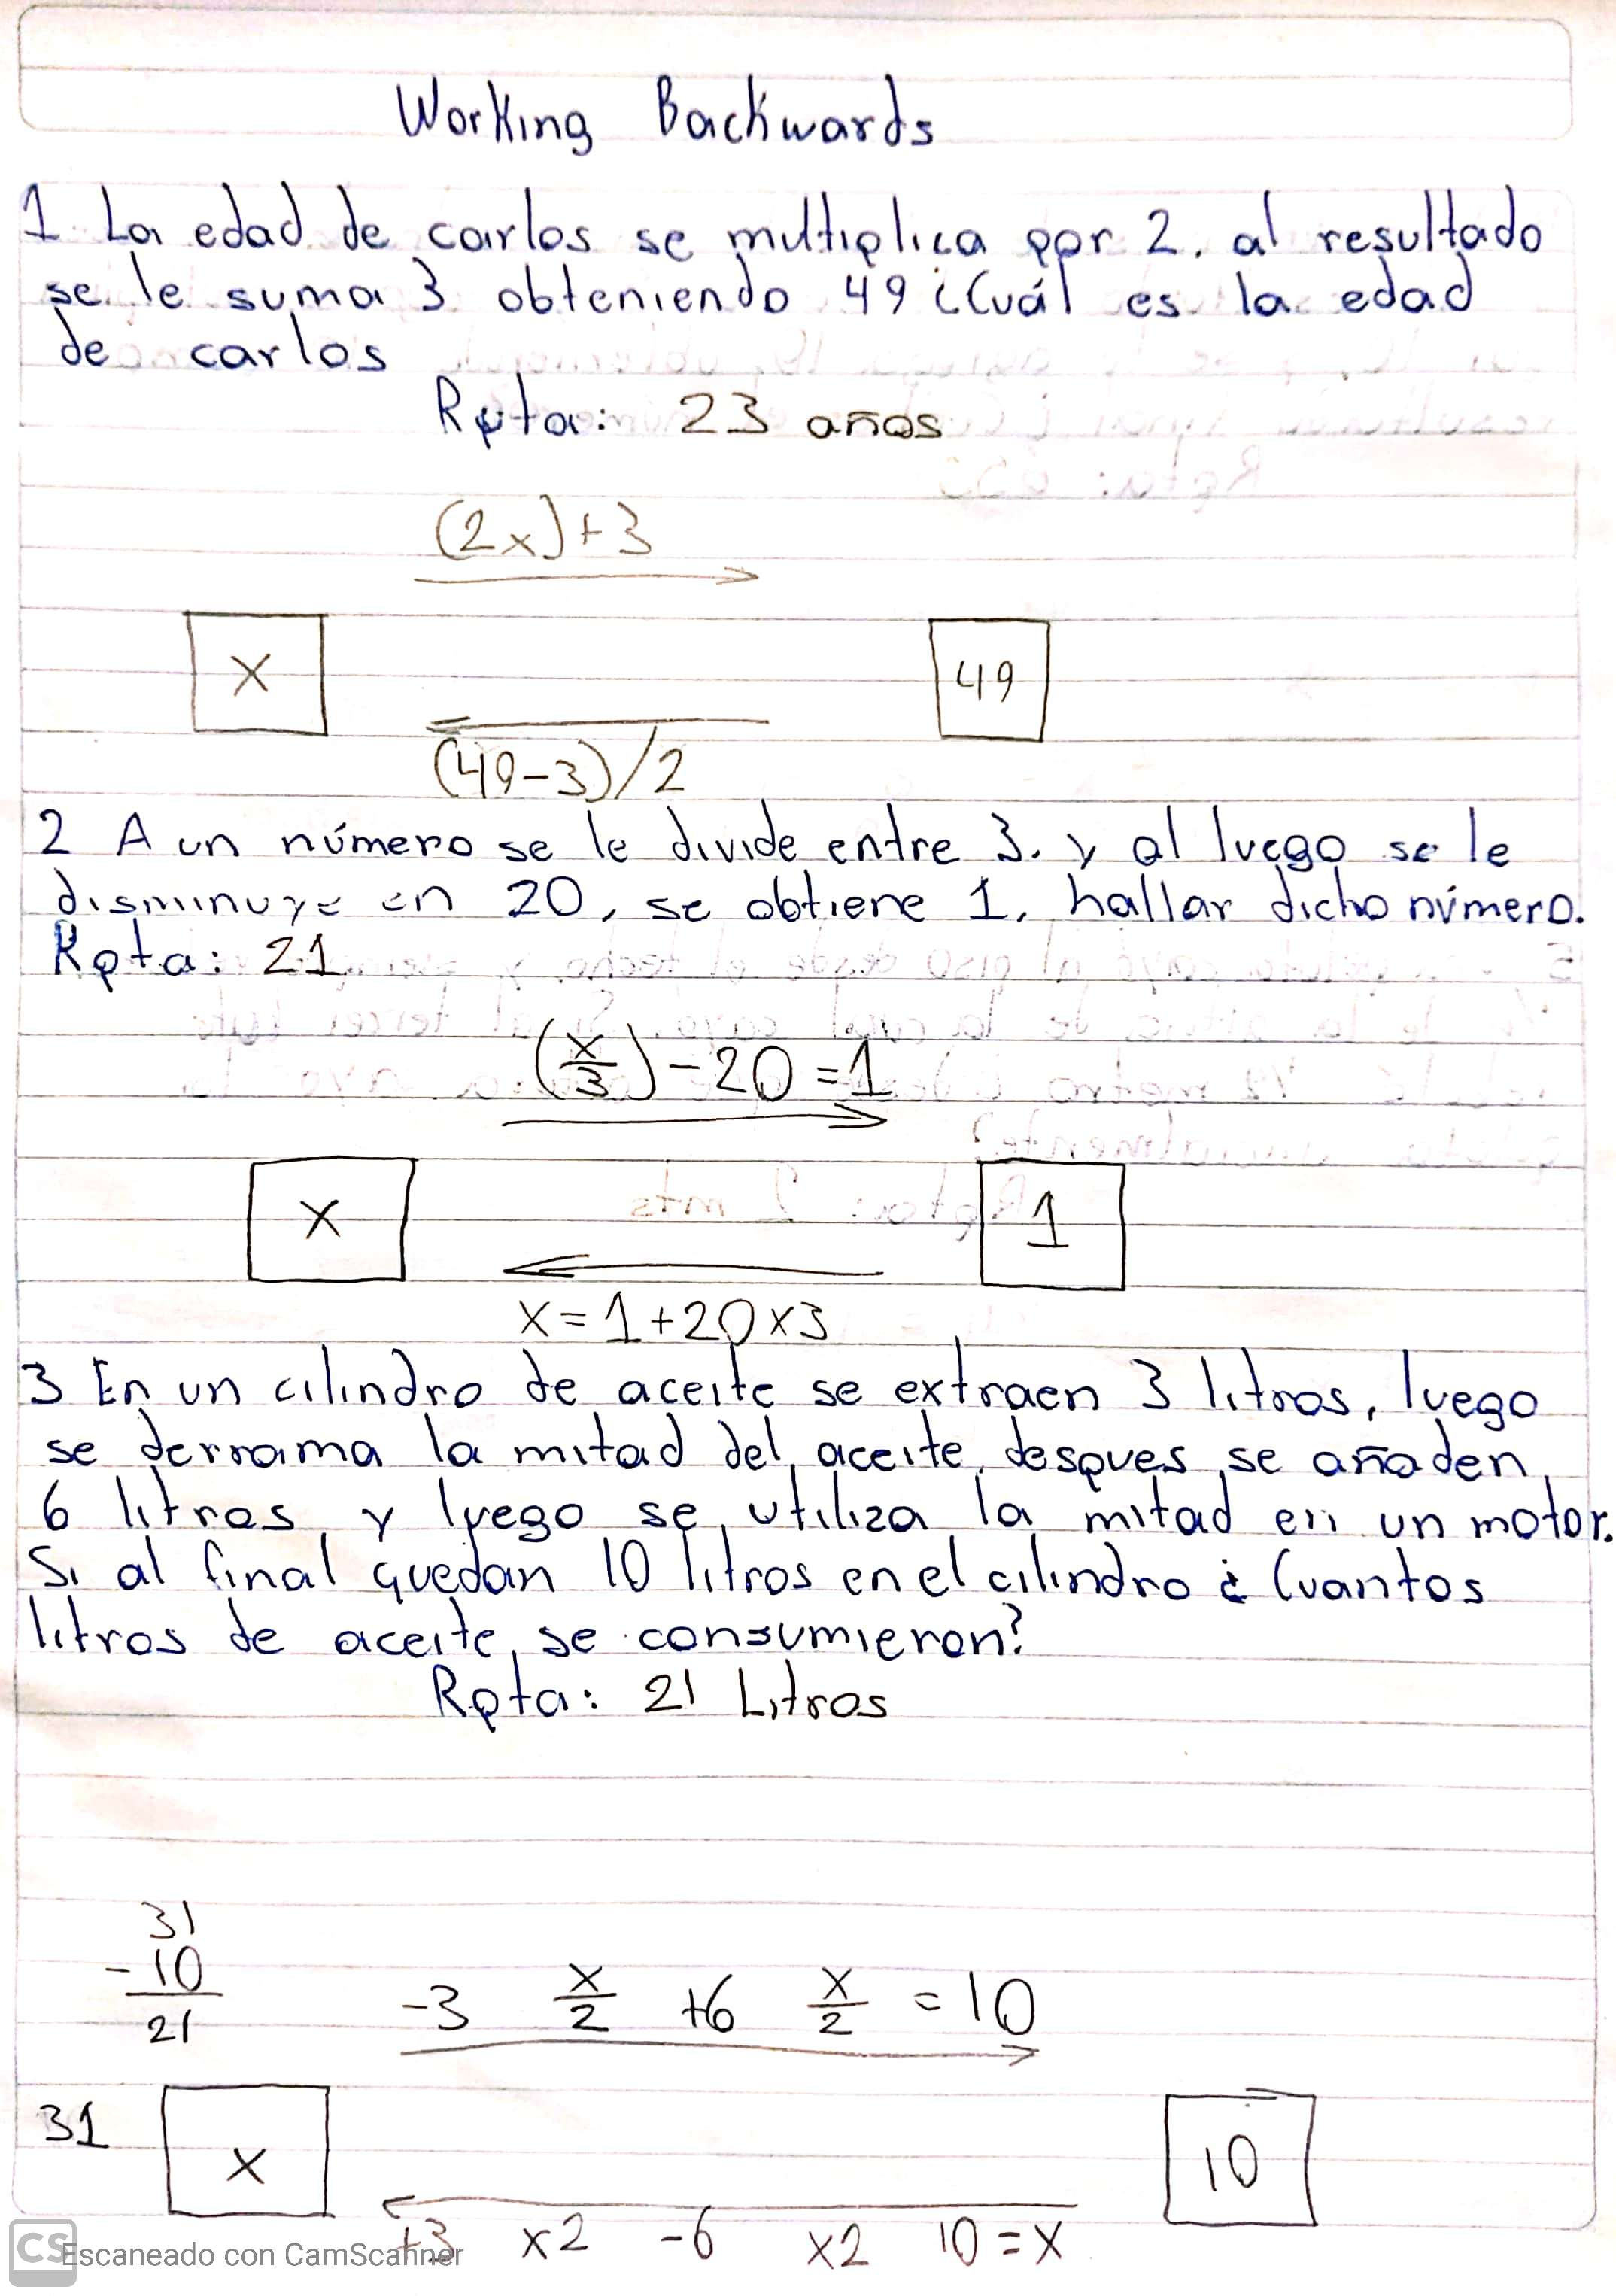 Working Backwards
1 La edad de carlos se multiplica por 2, al resultado
se le suma 3 obteniendo 49 ¿Cuál es la edad
de carlos
Rpta: 23 años
(2x)+3
X
49
(49-3)/2
2 A un número se le divide entre 3. y al luego se le
disminuye en 20, se obtiene 1, hallar dicho número.
Rpta: 21
(x/3)-20=1
X
1
X=1+20x3
3 En un cilindro de aceite se extraen 3 litros, luego
se derrama la mitad del aceite, despues se añaden
6 litros y luego se utiliza la mitad en un motor.
Si al final quedan 10 litros en el cilindro ¿Cuantos
litros de aceite se consumieron?
Rpta: 21 Litros
31
-10
21
-3 x/2 +6 x/2 =10
31
X
10
+3 x2 -6 x2 10=X
CS Escaneado con CamScanner